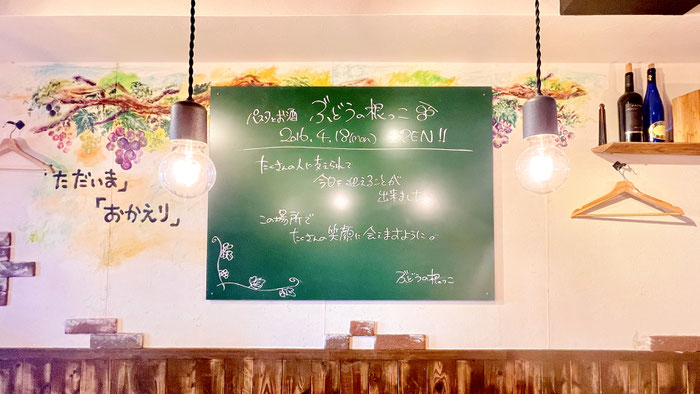 パスタとお酒 ぶどうの根っこ
2016.4.18(mon) OPEN!!
たくさんの人に支えられて
今日を迎えることが
出来ました。
この場所で
たくさんの笑顔に会えますように。
ぶどうの根っこ
「ただいま」
「おかえり」